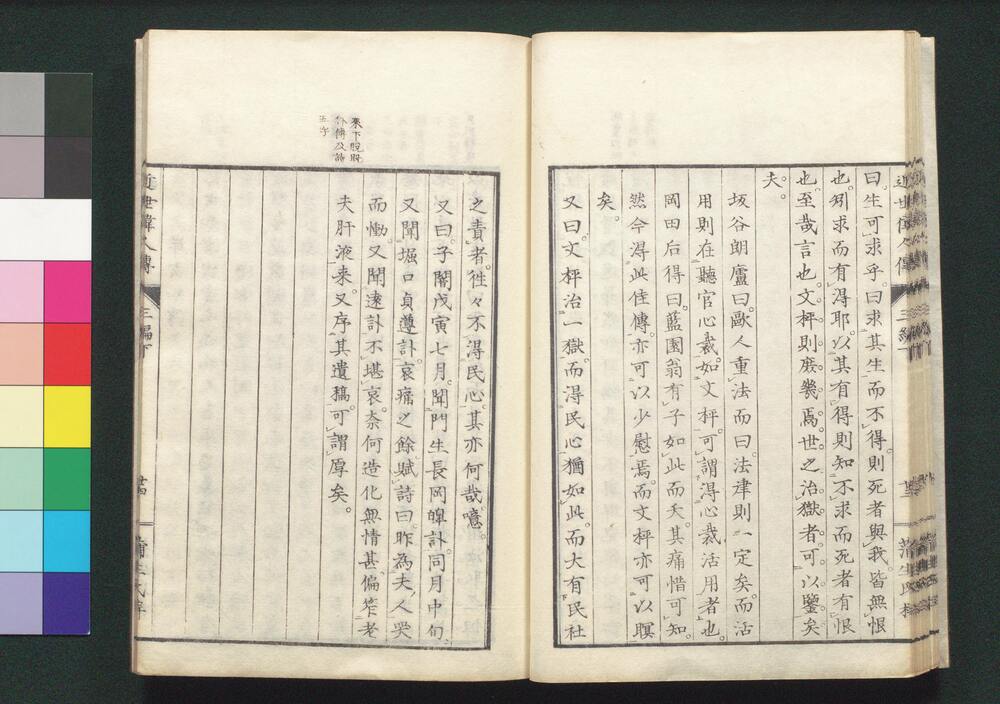 曰。生可求乎。曰求其生而不得。則死者與我皆無恨
也。矧求而有得耶。以其有得則知不求而死者有恨
也。至哉言也。文枰則庶幾焉。世之治獄者。可以鑒矣
夫。
坂谷朗廬曰。歐人重法而曰。法律則一定矣。而活
用則在聽官心裁。如文枰。可謂得心裁活用者也。
岡田后得曰。藍園翁有子如此而夭。其痛惜可知。
然今得此佳傳。亦可以少慰焉。而文枰亦可以瞑
矣。
又曰。文枰治一獄。而得民心猶如此。而大有民社
之責者。徃々不得民心。其亦何哉。噫。
又曰。子闇戊寅七月。聞門生長岡皞訃。同月中旬。
又聞堀口貞遵訃。哀痛之餘賦詩曰。昨為夫人哭
而慟。又聞遠訃不堪哀。奈何造化無情甚。偏窄老
夫肝液来。又序其遺稿。可謂厚矣。
来下脫
五字
近世偉人傳
三編下
蒲生氏